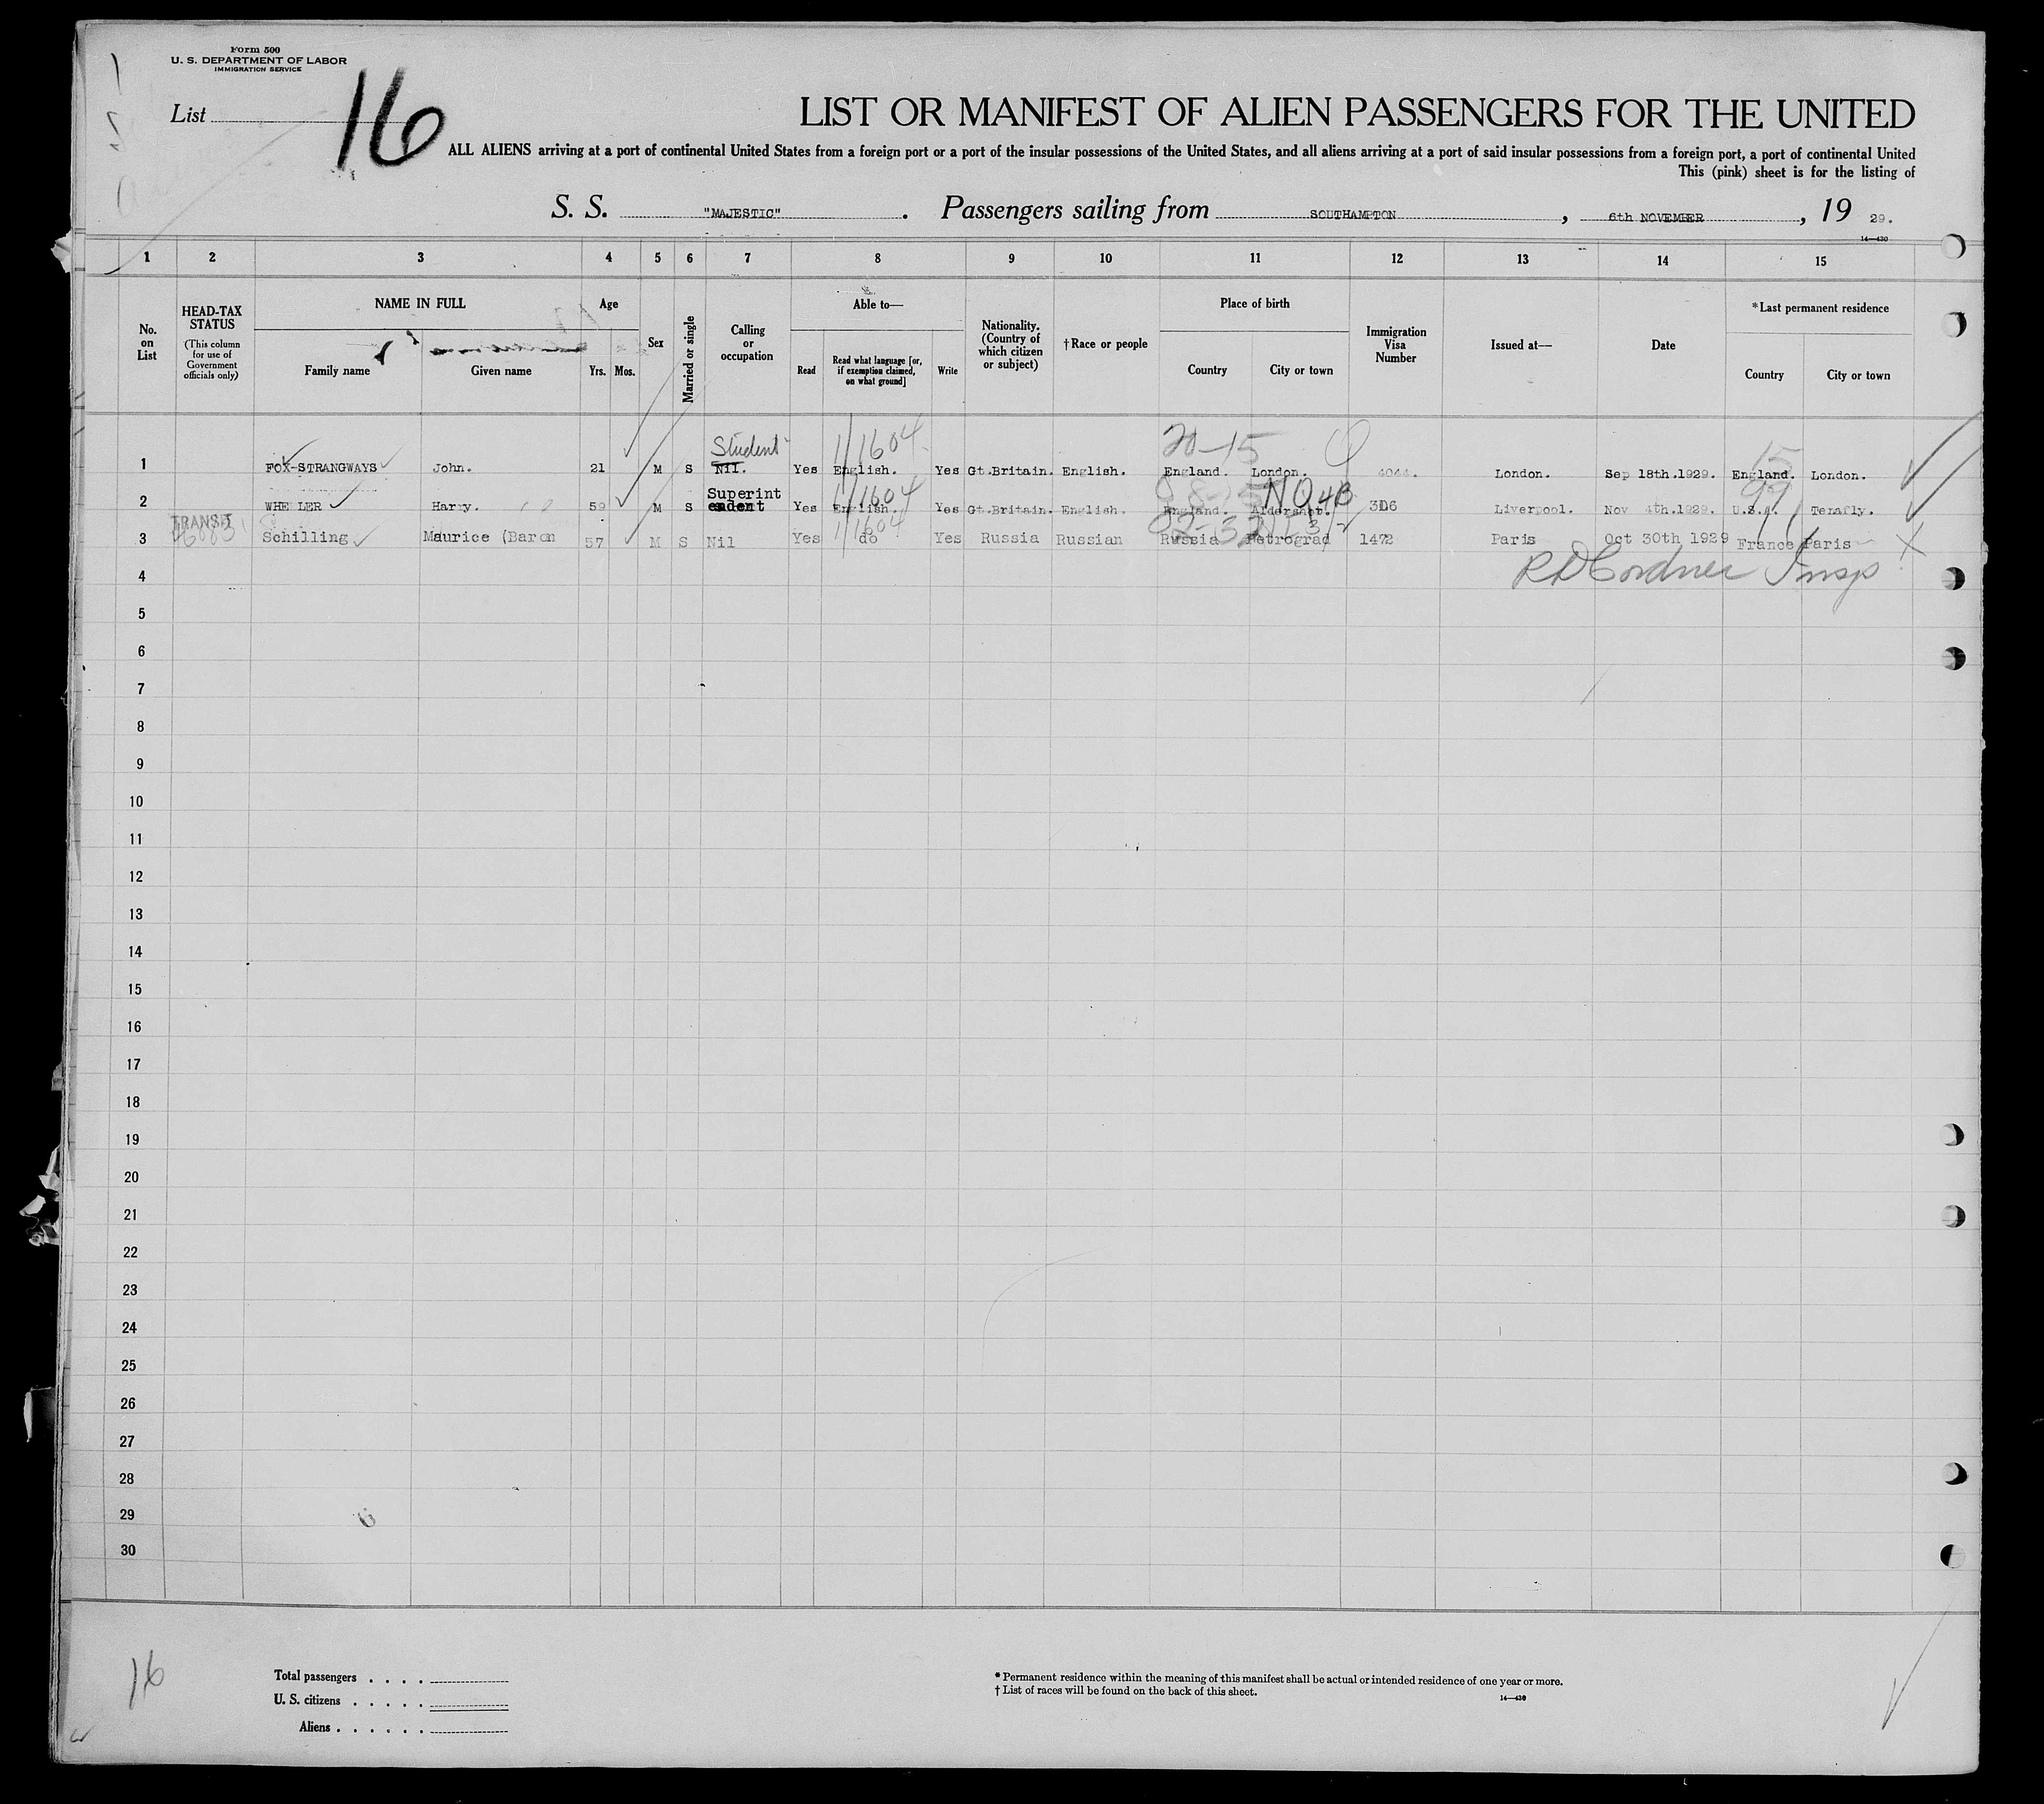 Form 500
U. S. DEPARTMENT OF LABOR
IMMIGRATION SERVICE
List 16
LIST OR MANIFEST OF ALIEN PASSENGERS FOR THE UNITED
ALL ALIENS arriving at a port of continental United States from a foreign port or a port of the insular possessions of the United States, and all aliens arriving at a port of said insular possessions from a foreign port, a port of continental United
This (pink) sheet is for the listing of
S. S. "MAJESTIC". Passengers sailing from SOUTHAMPTON, 6th NOVEMBER, 19 29.
14—430
1 2 3 4 5 6 7 8 9 10 11 12 13 14 15
No. on List
HEAD-TAX STATUS
(This column for use of Government officials only)
NAME IN FULL
Family name Given name
Age
Yrs. Mos.
Sex
Married or single
Calling or occupation
Able to—
Read
Read what language [or, if exemption claimed, on what ground]
Write
Nationality. (Country of which citizen or subject)
†Race or people
Place of birth
Country City or town
Immigration Visa Number
Issued at—
Date
*Last permanent residence
Country City or town
Student 1/1604 20-15 15
1 FOX-STRANGWAYS John. 21 M S Nil. Yes English. Yes Gt.Britain. English. England. London. 4044. London. Sep 18th.1929. England. London.
Superint 1/1604 NO 4B 99
2 WHEELER Harry. 59 M S endent Yes English. Yes Gt.Britain. English. England. Aldershot. 3D6 Liverpool. Nov 4th.1929. U.S.A. Tenafly.
TRANSIT 1/1604
3 Schilling Maurice (Baron 57 M S Nil Yes do Yes Russia Russian Russia Petrograd 1472 Paris Oct 30th 1929 France Paris
4 RD Cordner Insp
5
6
7
8
9
10
11
12
13
14
15
16
17
18
19
20
21
22
23
24
25
26
27
28
29
30
16
Total passengers . . . .
U. S. citizens . . . . .
Aliens . . . . . .
* Permanent residence within the meaning of this manifest shall be actual or intended residence of one year or more.
† List of races will be found on the back of this sheet.
14—430